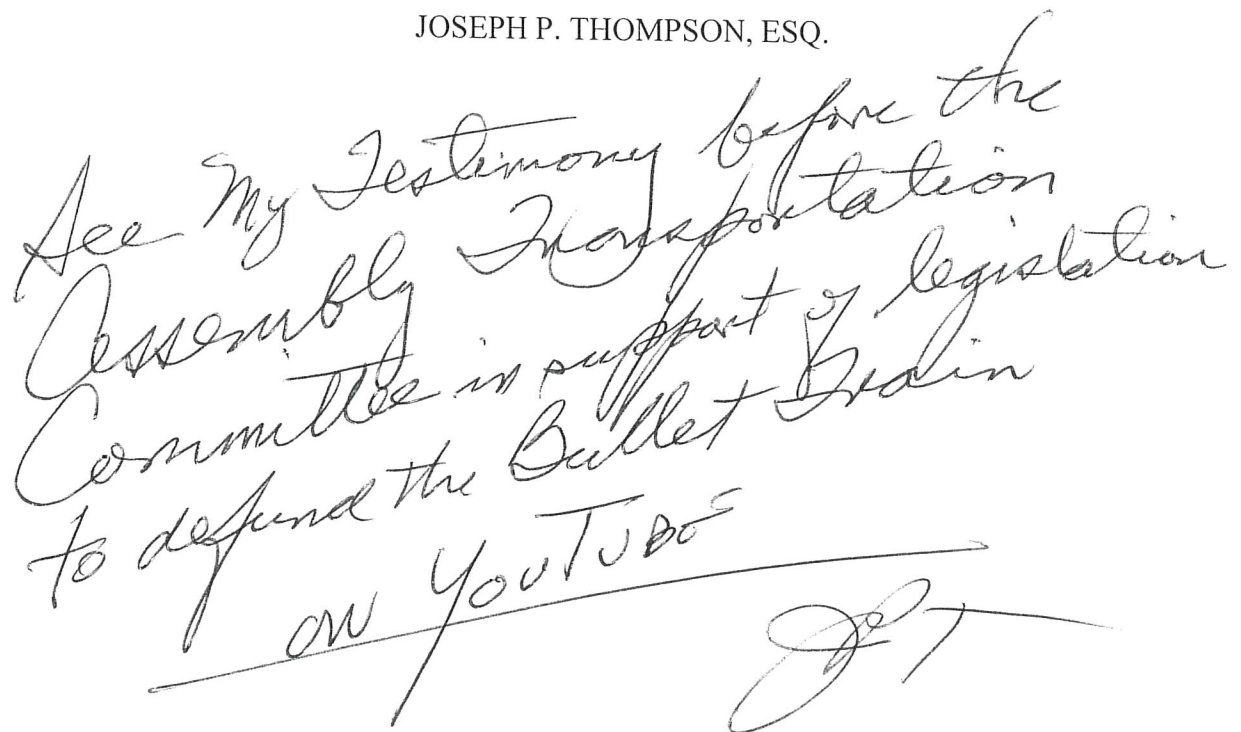 JOSEPH P. THOMPSON, ESQ.
See My Testimony before the
Assembly Transportation
Committee in support of legislation
to defund the Bullet Train
on YouTube
JPT